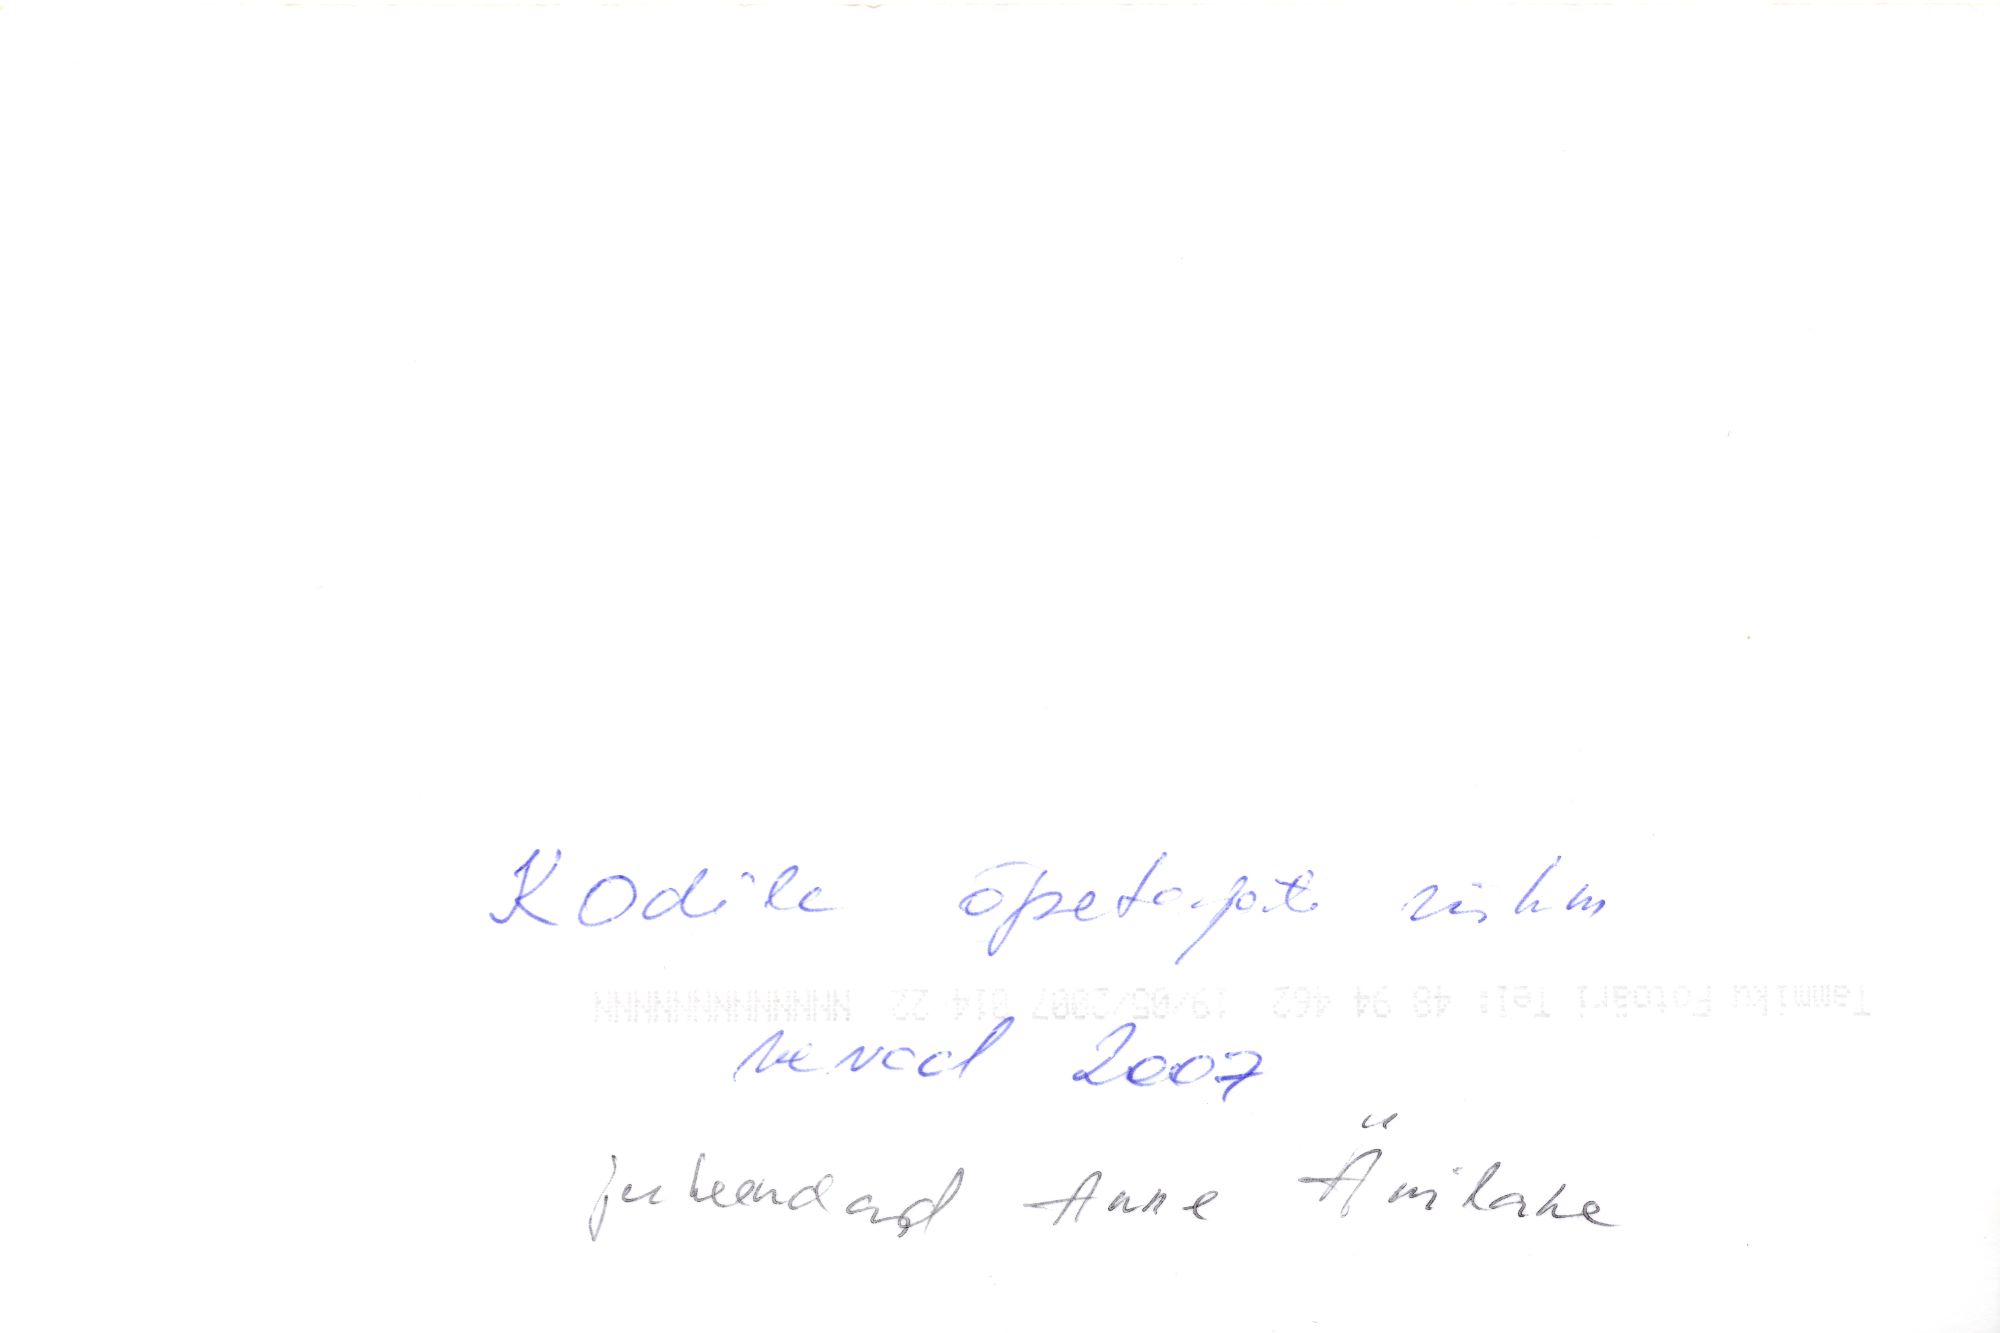 Kodila õpetajate rühm
Tammiku Fotoäri Tel: 48 94 462 19/05/2007 014 22 NNNNNNNNNNNNN
kevad 2007
juhendaja Anne